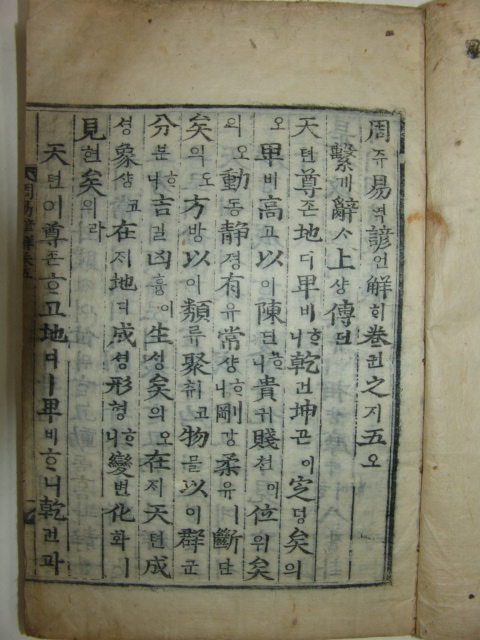 周쥬易역諺언解ᄒᆡ卷권之지五오
繫계辭ᄉᆞ上샹傳뎐
天텬尊존地디卑비ᄒᆞ니乾건坤곤이定뎡矣의
오卑비高고以이陳딘ᄒᆞ니貴귀賤쳔이位위矣
의오動동靜졍有유常샹ᄒᆞ니剛강柔유ㅣ斷단
矣의오方방以이類류聚취코物믈以이群군
分분ᄒᆞ니吉길凶흉이生ᄉᆡᆼ矣의오在ᄌᆡ天텬成
셩象샹코在ᄌᆡ地디成셩形형ᄒᆞ니變변化화ㅣ
見현矣의라
天텬이尊존ᄒᆞ고地디ㅣ卑비ᄒᆞ니乾건과